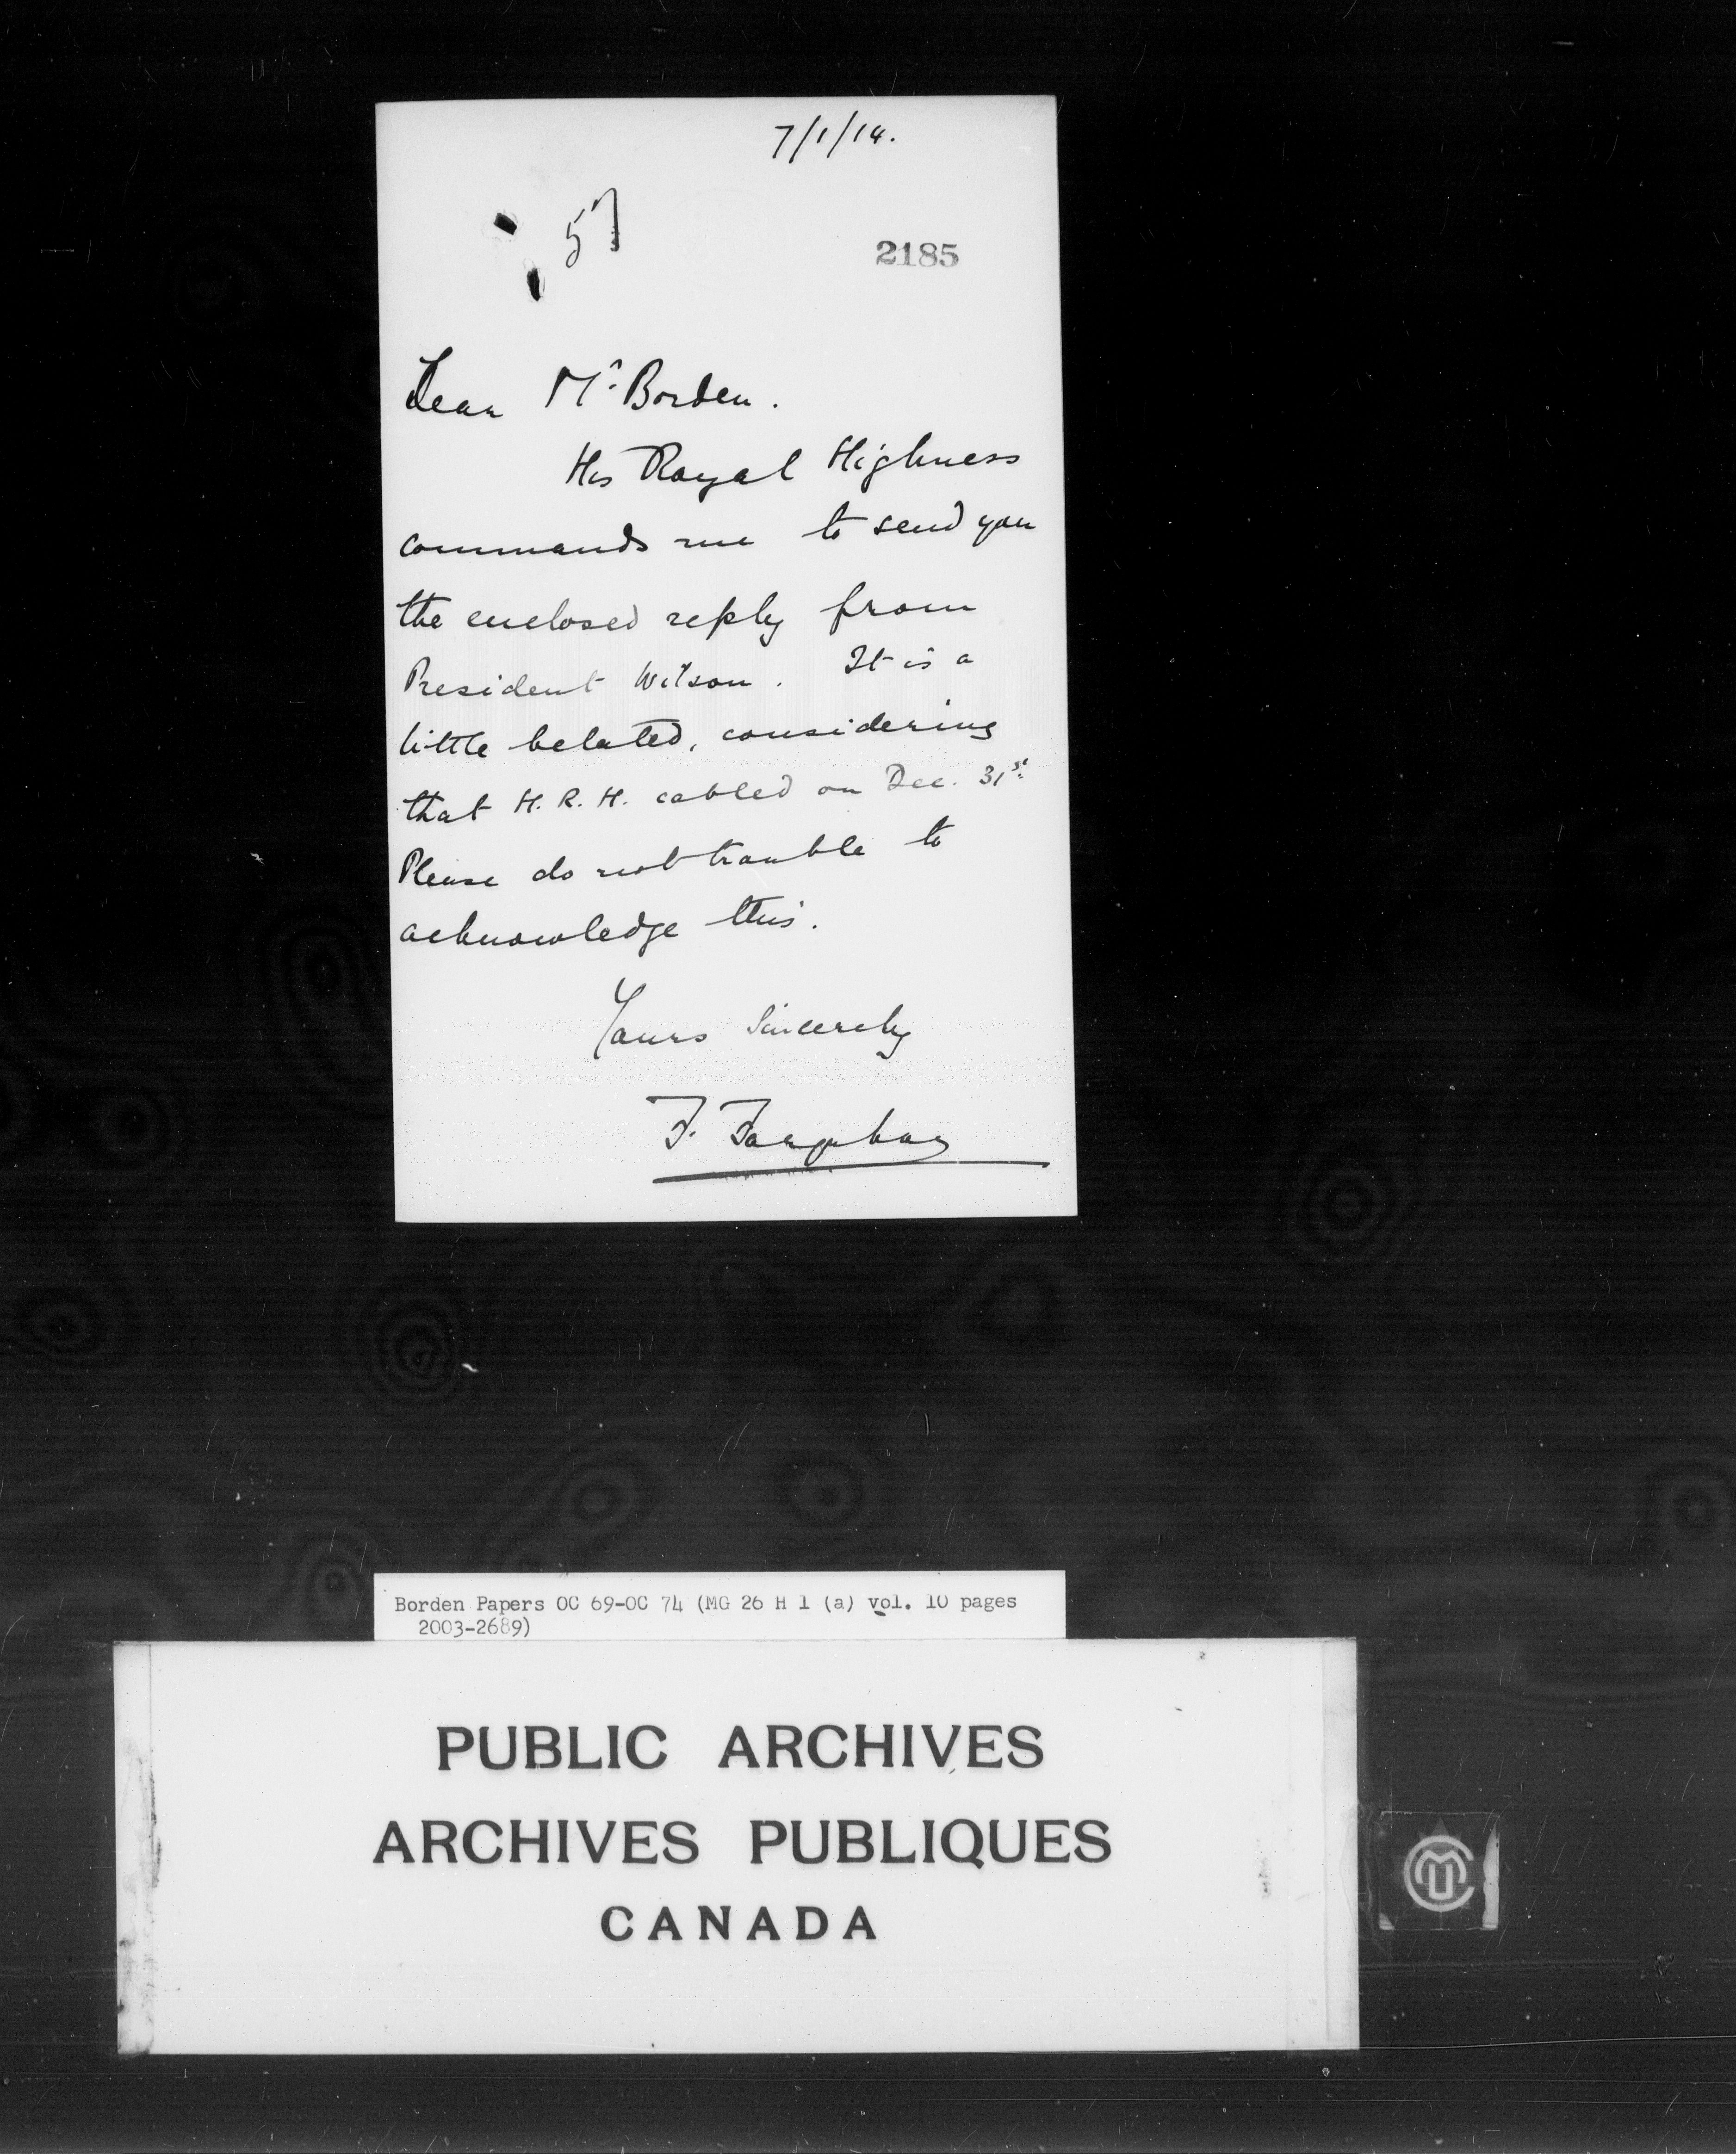 7/1/14.
57
2185
Dear Mr. Borden.
His Royal Highness
commands me to send you
the enclosed reply from
President Wilson. It is a
little belated, considering
that H.R.H. cabled on Dec. 31st.
Please do not trouble to
acknowledge this.
Yours Sincerely
F. Farquhar
Borden Papers OC 69-OC 74 (MG 26 H 1 (a) vol. 10 pages
2003-2689)
PUBLIC ARCHIVES
ARCHIVES PUBLIQUES
CANADA